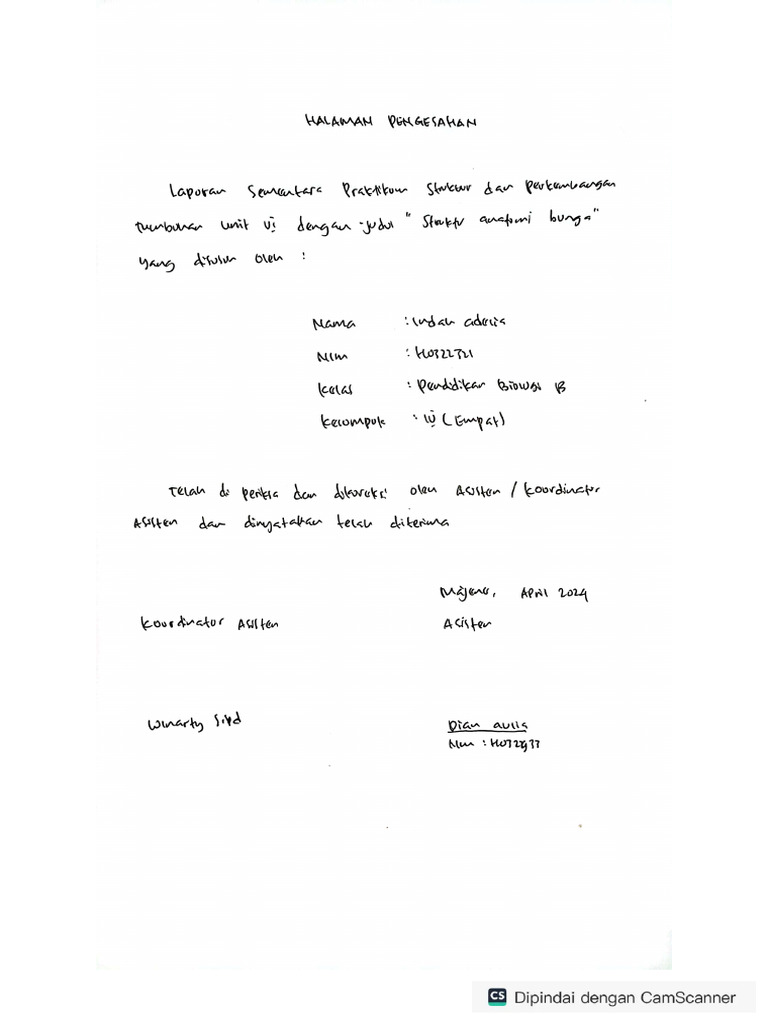 HALAMAN PENGESAHAN
Laporan Sementara Praktikum Struktur dan Perkembangan
Tumbuhan Unit VI dengan judul " Struktur anatomi bunga "
yang disusun oleh :
Nama : Indah adelia
Nim : H0322321
Kelas : Pendidikan Biologi B
Kelompok : IV (Empat)
Telah di periksa dan dikoreksi oleh Asisten / Koordinator
Asisten dan dinyatakan telah diterima
Majene, April 2024
Koordinator Asisten Asisten
Winarty S.Pd Dian aulia
Nim :
CS Dipindai dengan CamScanner